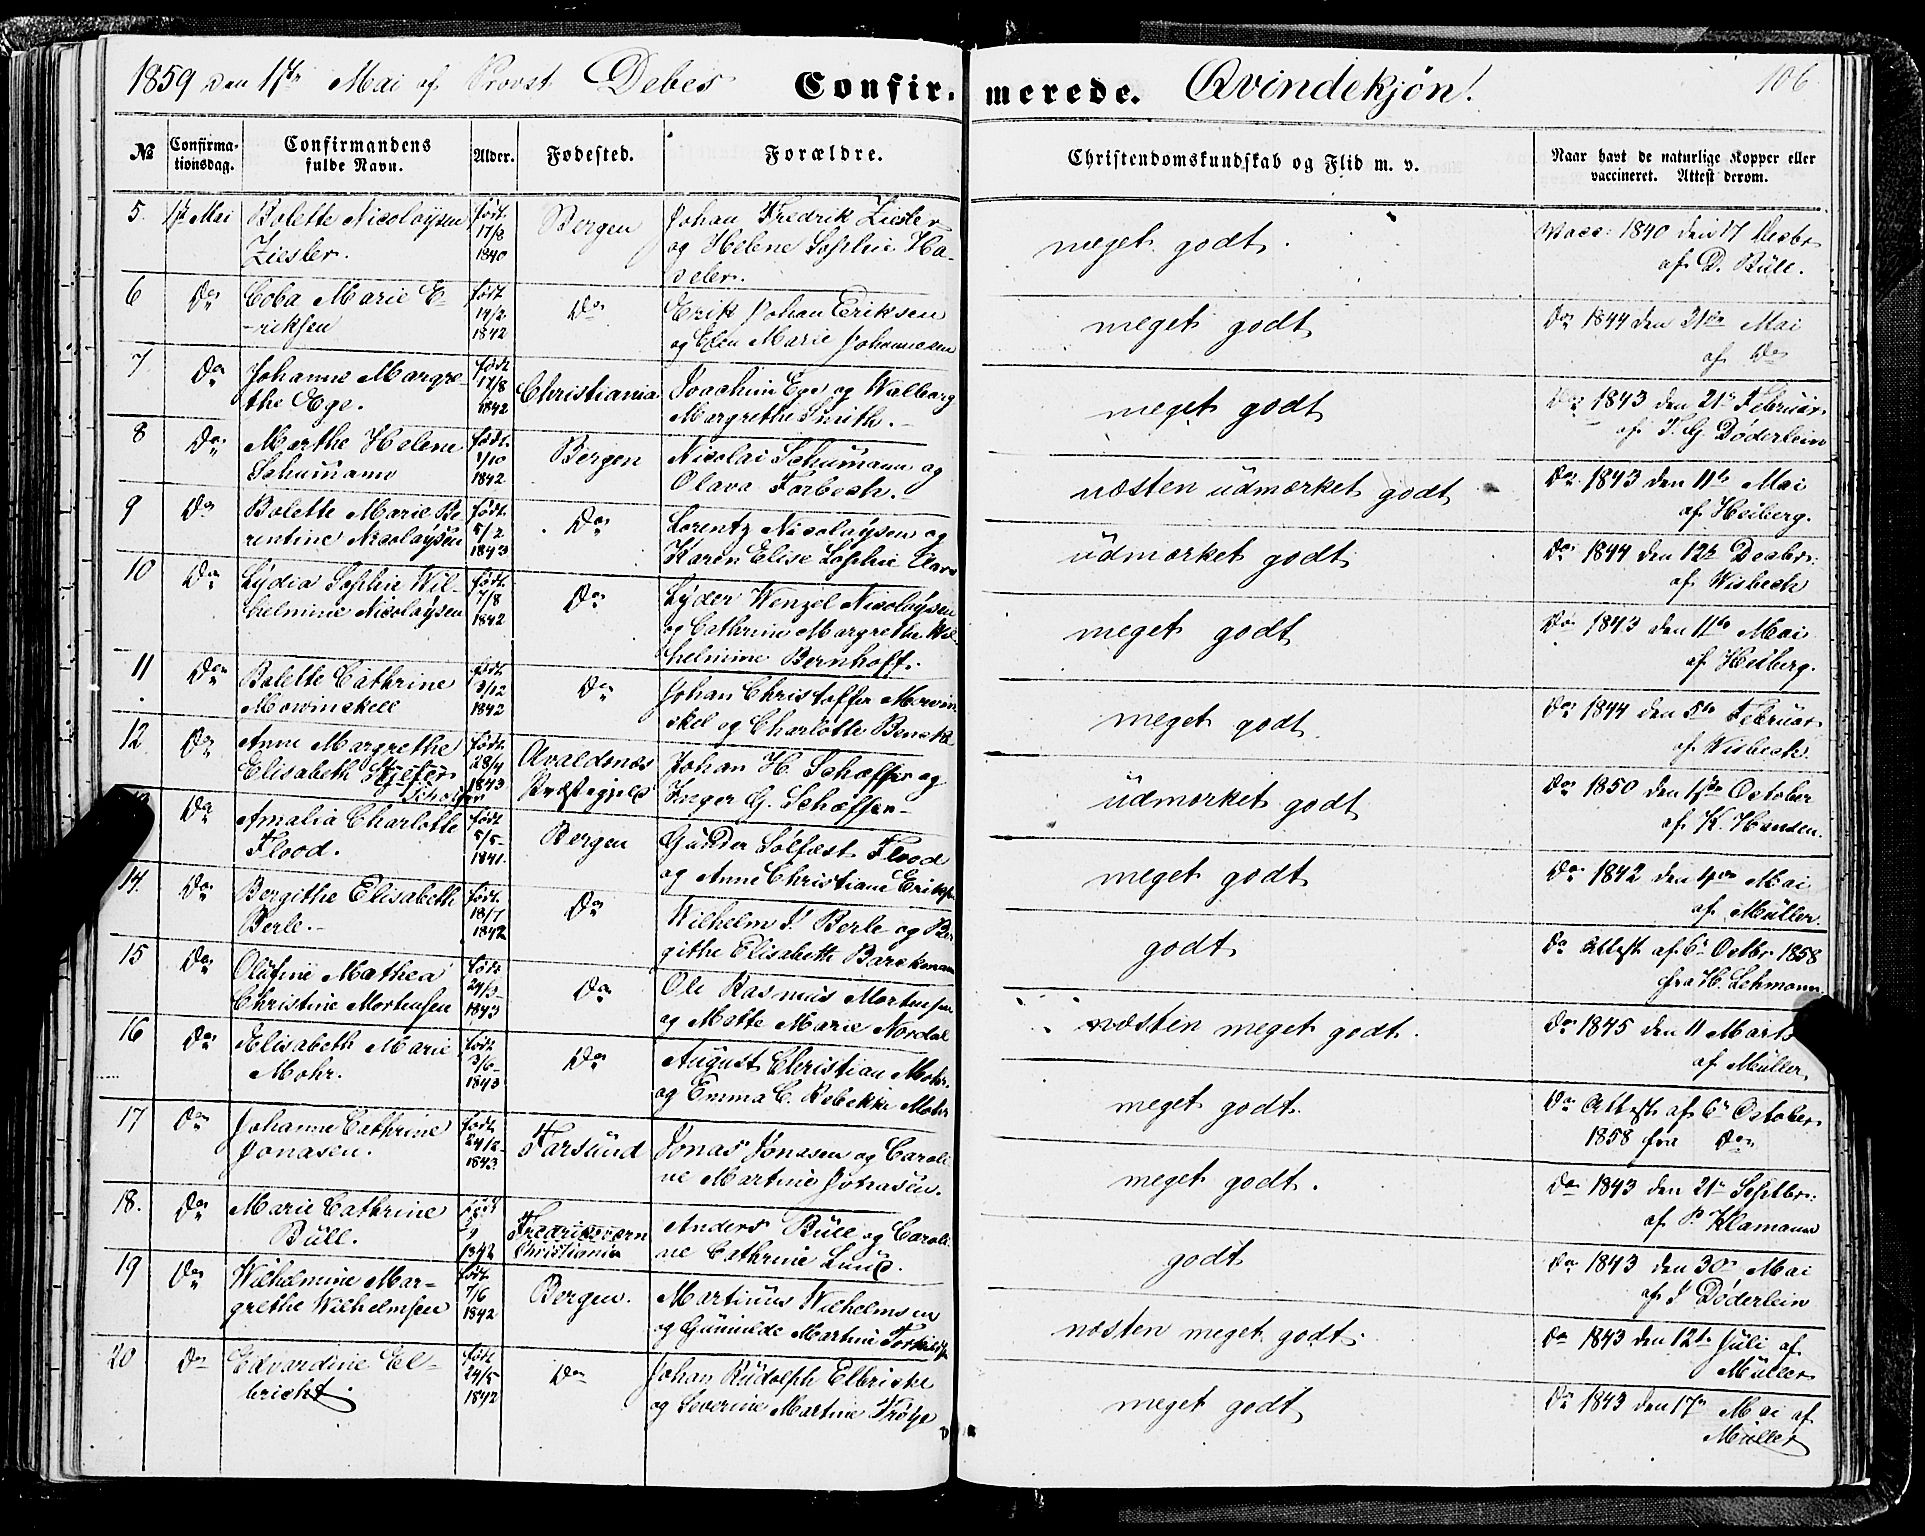 1859 den 1ste Mai af Provst Debes Confirmerede. Qvindekjön! 106
№ Confirma-tionsdag. Confirmandens fulde Navn. Alder. Fødested. Forældre. Christendomskundskab og Flid m. v. Naar havt de naturlige Kopper eller vaccineret. Attest derom.
5. 1ste Mai Bolette Nicolaÿsen født Bergen Johan Fredrik Ziesler meget godt. Vacc: 1840 den 17 Decbr
Ziesler. 17/8 1840 og Helene Sophie Ha- af D. Büll.
seler.
6 Do Coba Marie E- født Do Erik Johan Eriksen meget godt Do 1844 den 21de Mai
-riksen 14/2 1842 og Elen Marie Johannesen af Do
7 Do Johanne Margre- født Christiania Joachim Ege og Walborg meget godt Do 1843 den 21de Februar
the Ege. 12/8 1842 Margrethe Smith. af J. G. Døderlein
8 Do Marthe Helene født Bergen Nicolai Schumann og næsten üdmærket godt Do 1843 den 11te Mai
Schumann 1/10 1842 Olava Forbech. af Heiberg.
9 Do Bolette Marie Be- født Do Lorentz Nicolaÿsen og üdmærket godt Do 1844 den 12te Decbr:
rentine Nicolaÿsen 5/2 1843 Karen Elise Sophie af Wisbech
10 Do Lydia Sophie Wil- født Do Lÿder Wenzel Nicolaÿsen meget godt Do 1843 den 11te Mai
helmine Nicolaÿsen 7/8 1842 og Cathrine Margrethe Wil- af Heiberg.
helmine Bernhoft.
11 Do Bolette Cathrine født Do Johan Christoffer Mowin meget godt Do 1844 den 5te Februar
Mowinskell 3/12 1842 skel og Charlotte af Wisbech
12 Do Anne Margrethe født Avaldsnæs Johan H. Schæffer og üdmærket godt Do 1850 den 1ste October
Elisabeth 28/4 1843 Præstegjeld Inger G. Schæffer af K. Hansen.
13 Do Amalia Charlotte født Bergen Gudder Solfæst Flood meget godt Do 1842 den 4de Mai
Flood. 5/5 1841. og Anne Christiane Eriksen af Müller.
14. Do Bergithe Elisabeth født Do Wilhelm J. Berle og Ber godt Do Attest af 6te Octbr 1858
Berle. 18/7 1842 githe Elisabeth Barckmann fra H. Lehmann
15 Do Olüfine Mathea født Do Ole Rasmus Mortensen næsten meget godt. Do 1845 den 11 Marts
Christine Mortensen 24/3 1843 og Mette Marie Nordal af Müller
16 Do Elisabeth Marie født Do August Christian Mohr meget godt. Do Attest af 6te October
Mohr. 3/6 1843 og Emma C. Rebekka Mohr 1858 fra Do
17 Do Johanne Cathrine født Farsund Jonas Jonasen og Caroli meget godt. Do 1843 den 21de Septbr:
Jonasen. 24/2 1843 ne Martine Jonasen. af P. Klamann
18. Do Marie Cathrine født Fredriksværn Anders Büll og Caroli godt Do 1843 den 30te Mai
Büll. 9 1842 Christiania ne Cathrine Lund. af J Døderlein
19 Do Wilhelmine Mar- født Bergen. Martinus Wilhelmsen næsten meget godt. Do 1843 den 12te Juli af
grethe Wilhelmsen 7/6 1842 og Gunnilde Martine Müller
20 Do Edvardine El- født Do Johan Rüdolph Elbricht meget godt Do 1843 den 17de Mai af
bricht. 24/5 1842 og Severine Martine Müller